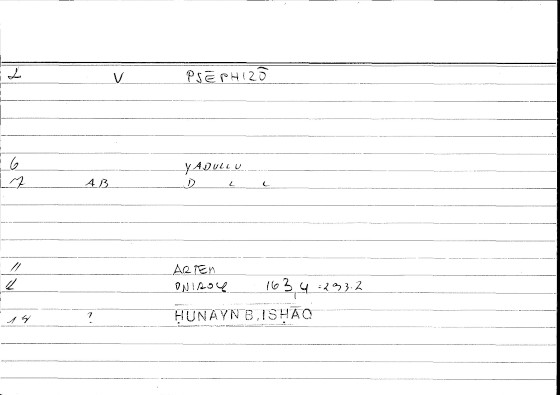 1 V PSĒPHIZŌ
6 YADULLU
7 AB D L L
11 ARTEM
12 ONIROC 163,4 = 293.2
14 ? ḤUNAYN B. ISḤĀQ